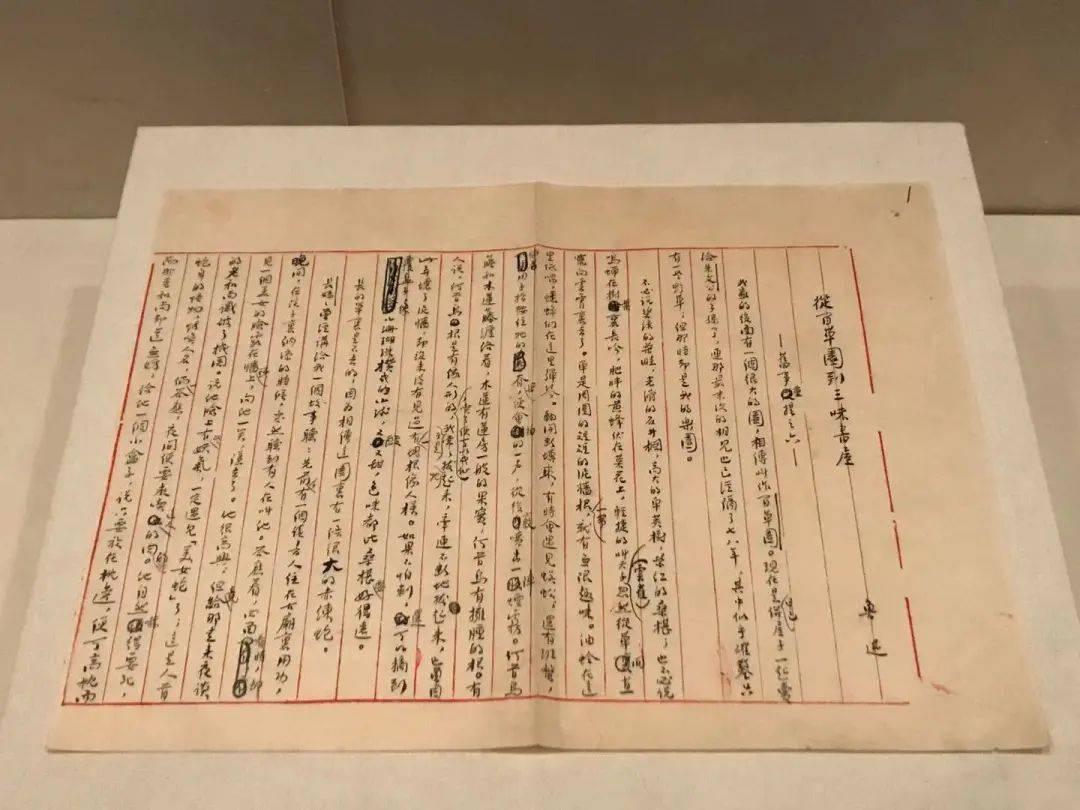 1
從百草園到三味書屋
——舊事重提之六——
魯迅
我家的後面有一個很大的園，相傳叫作百草園。現在是早已併屋子一起賣
給朱文公的子孫了，連那最末次的相見也已經隔了七八年，其中似乎確鑿只
有一些野草；但那時卻是我的樂園。
不必說碧綠的菜畦，光滑的石井欄，高大的皁莢樹，紫紅的桑椹；也不必說
鳴蟬在樹葉裏長吟，肥胖的黃蜂伏在菜花上，輕捷的叫天子（雲雀）忽然從草間直
竄向雲霄裏去了。單是周圍的短短的泥牆根一帶，就有無限趣味。油蛉在這
里低唱，蟋蟀們在這里彈琴。翻開斷磚來，有時會遇見蜈蚣；還有斑蝥，
倘若用手指按住牠的脊梁，便會拍的一聲，從後竅噴出一陣煙霧。何首烏
藤和木蓮藤纏絡着，木蓮有蓮房一般的果實，何首烏有擁腫的根。有
人說，何首烏根是有像人形的，吃了便可以成仙，我於是常常拔牠起來，牽連不斷地拔起來，也曾因
此弄壞了泥牆，卻從來沒有見過有一塊根像人樣。如果不怕刺，還可以摘到
覆盆子，像小珊瑚珠攢成的小球，又酸又甜，色味都比桑椹好得遠。
長的草裏是不去的，因為相傳這園裏有一條很大的赤練蛇。
長媽媽曾經講給我一個故事聽：先前，有一個讀書人住在古廟裏用功，
晚間，在院子裏納涼的時候，突然聽到有人在叫他。答應着，四面看時，卻
見一個美女的臉露在牆頭上，向他一笑，隱去了。他很高興；但竟給那走來夜談
的老和尚識破了機關。說他臉上有些妖氣，一定遇見「美女蛇」了；這是人首
蛇身的怪物，能喚人名，倘一答應，夜間便要來吃這人的肉的。他自然嚇得要死，
而那老和尚卻道無妨，給他一個小盒子，說只要放在枕邊，便可高枕而